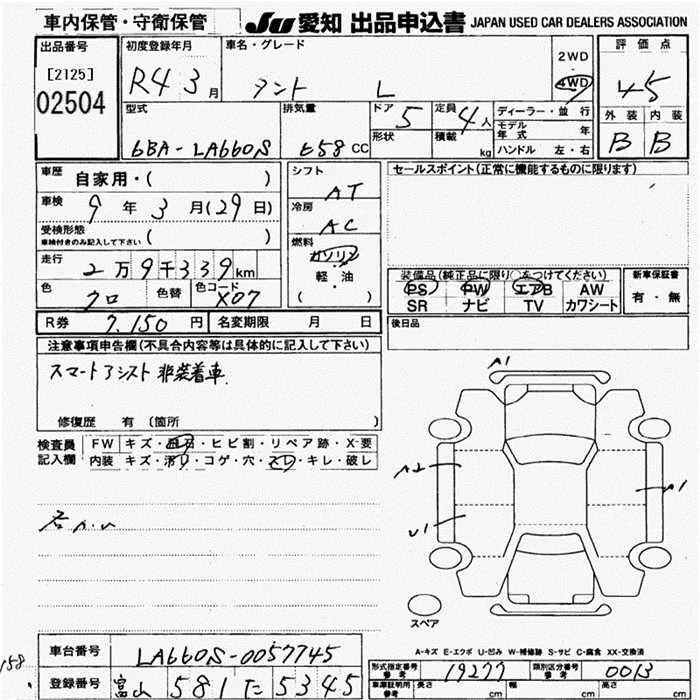 車内保管・守衛保管
JU 愛知 出品申込書 JAPAN USED CAR DEALERS ASSOCIATION
出品番号
[2125]
02504
初度登録年月
R4 3 月
車名・グレード
タント L
2WD
4WD
評価点
4.5
型式
6BA-LA660S
排気量
658 CC
ドア
5
形状
定員
4人
積載
kg
ディーラー・並行
モデル年式 年
ハンドル 左・右
外装 内装
B B
車歴
自家用・( )
車検
9 年 3 月(29日)
受検形態
車検付きのみ記入して下さい ( )
走行
2万9千339km
色
クロ
色替
色コード
X07
シフト
AT
冷房
AC
燃料
ガソリン
軽・油
( )
セールスポイント(正常に機能するものに限ります)
装備品(純正品に限り○をつけてください)
PS PW エアB AW
SR ナビ TV カワシート
新車保証書
有・無
R券 7,150 円
名変期限 月 日
後日品
注意事項申告欄(不具合内容等は具体的に記入して下さい)
スマートアシスト 非装着車
修復歴 有 (箇所 )
検査員記入欄
FW キズ・飛石・ヒビ割・リペア跡・X-要
内装 キズ・汚レ・コゲ・穴・スレ・キレ・破レ
A1
A2
A1
U1
スペア
A-キズ E-エクボ U-凹み W-補修跡 S-サビ C-腐食 XX-交換済
車台番号
LA660S-0057745
登録番号
富山 581 た 5345
158
形式指定番号 参考
19277
類別区分番号 参考
0013
車庫証明用 参考
長さ cm 幅 cm 高さ cm